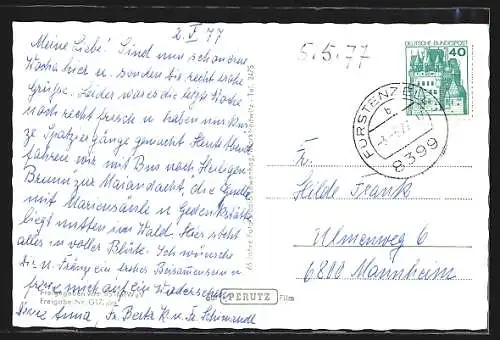 2. V 77
Meine Liebe! Sind nun schon eine
Woche hier u. senden Dir recht liebe
Grüße. Leider war es die letzte Woche
noch recht frisch u haben nur kurze
Spaziergänge gemacht. Heute
fahren wir mit Bus nach Heiligen-
Brunn zur Maiandacht, die Quelle
mit Mariensäule u Gedenkstätte
liegt mitten im Wald. Hier steht
alles in voller Blüte. Ich wünsche
Dir u. ein Beisammensein u
freue mich auf ein Wiedersehen
Deine Anna, Fr. Berta K. u. Fr.
5.5.77
DEUTSCHE BUNDESPOST
40
FÜRSTENZELL
b
8399
Fr.
Hilde Frank
Ulmenweg 6
6800 Mannheim
Freigegeben
Freigabe-Nr. G
auf PERUTZ Film